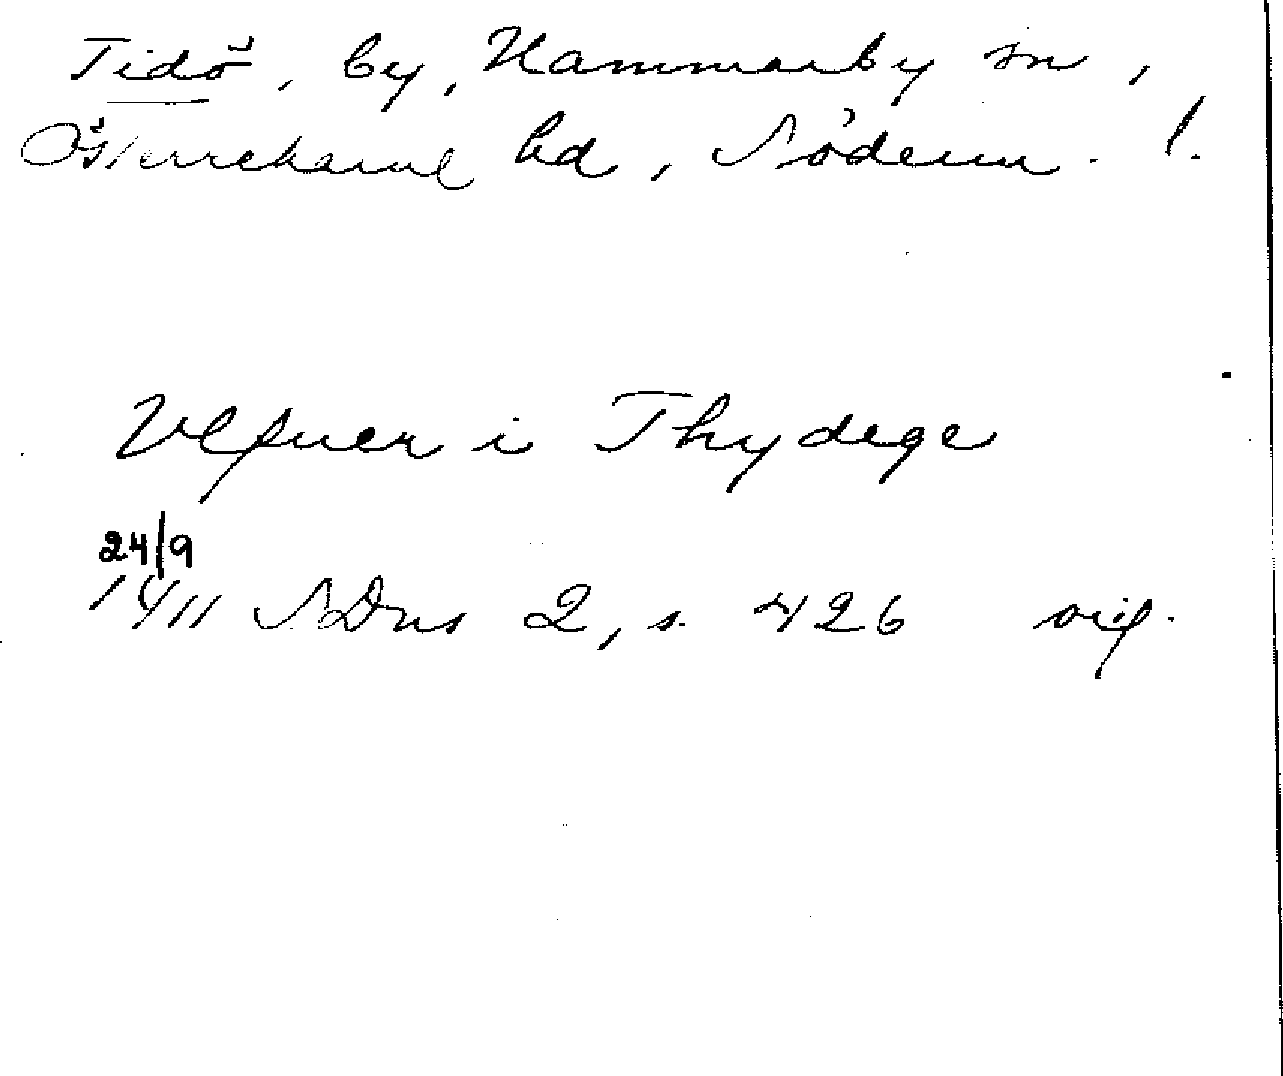 Tidö, by, Hammarby sn,
Österrekarne hd, Söderm. l.
Vlfuer i Thydege
24/9
1411 SDns 2, s. 426 orig.